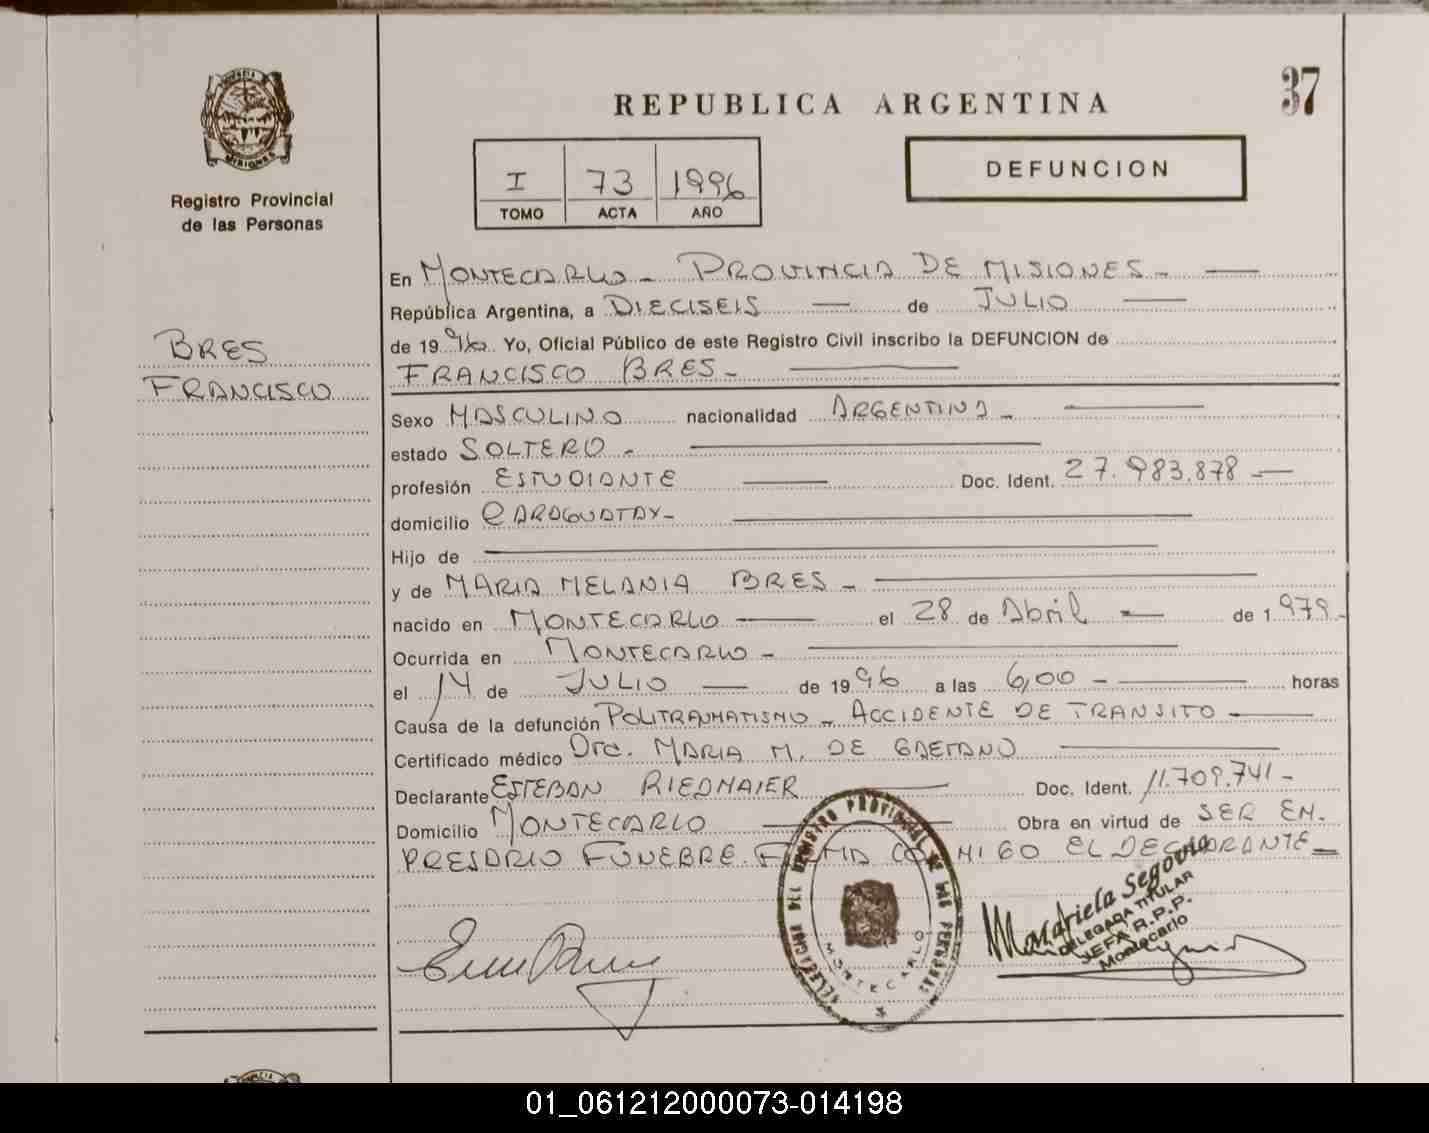 37
REPUBLICA ARGENTINA
DEFUNCION
MISIONES
Registro Provincial
de las Personas
I 73 1996
TOMO ACTA AÑO
BRES
FRANCISCO
En MONTECARLO - PROVINCIA DE MISIONES -
República Argentina, a DIECISEIS de JULIO
de 1996 Yo, Oficial Público de este Registro Civil inscribo la DEFUNCION de
FRANCISCO BRES -
Sexo MASCULINO nacionalidad ARGENTINA -
estado SOLTERO -
profesión ESTUDIANTE Doc. Ident. 27.983.878 -
domicilio CARAGUATAY -
Hijo de
y de MARIA MELANIA BRES -
nacido en MONTECARLO el 28 de Abril de 1979 -
Ocurrida en MONTECARLO -
el 14 de JULIO de 1996 a las 6,00 - horas
Causa de la defunción POLITRAUMATISMO - ACCIDENTE DE TRANSITO -
Certificado médico Dra. MARIA M. DE GAETANO
Declarante ESTEBAN RIEDMAIER Doc. Ident. 11.709.741 -
Domicilio MONTECARLO Obra en virtud de SER EM-
PRESARIO FUNEBRE. FIRMA CONMIGO EL DECLARANTE -
REGISTRO PROVINCIAL DE LAS PERSONAS
MONTECARLO
Mardriela Segovia
DELEGADA TITULAR
JEFA R.P.P.
Montecarlo
01_061212000073-014198